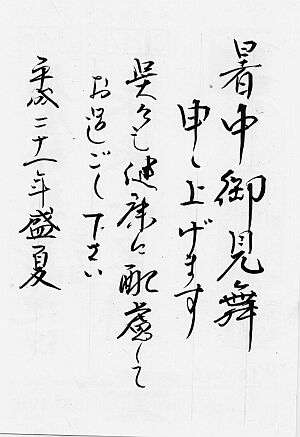 暑中御見舞
申し上げます
呉々も健康に配慮して
お過ごし下さい
平成二十一年盛夏